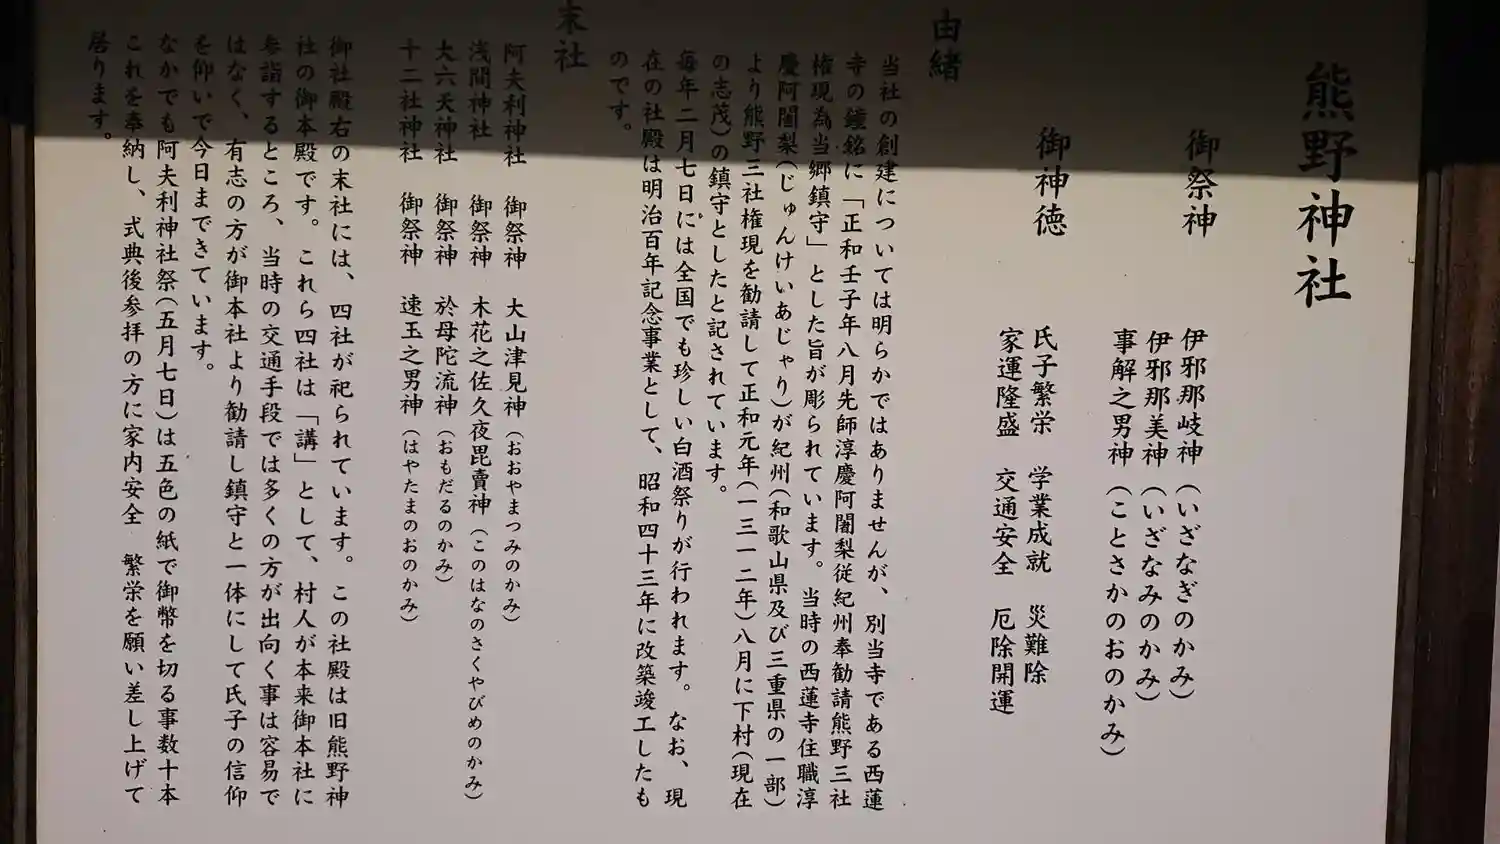 熊野神社
御祭神
伊邪那岐神(いざなぎのかみ)
伊邪那美神(いざなみのかみ)
事解之男神(ことさかのおのかみ)
御神徳
氏子繁栄 学業成就 災難除
家運隆盛 交通安全 厄除開運
由緒
当社の創建については明らかではありませんが、別当寺である西蓮
寺の鐘銘に「正和壬子年八月先師淳慶阿闍梨従紀州奉勧請熊野三社
権現為当郷鎮守」とした旨が彫られています。当時の西蓮寺住職淳
慶阿闍梨(じゅんけいあじゃり)が紀州(和歌山県及び三重県の一部)
より熊野三社権現を勧請して正和元年(一三一二年)八月に下村(現在
の志茂)の鎮守としたと記されています。
毎年二月七日には全国でも珍しい白酒祭りが行われます。なお、現
在の社殿は明治百年記念事業として、昭和四十三年に改築竣工したも
のです。
末社
阿夫利神社 御祭神 大山津見神(おおやまつみのかみ)
浅間神社 御祭神 木花之佐久夜毘賣神(このはなのさくやびめのかみ)
大六天神社 御祭神 於母陀流神(おもだるのかみ)
十二社神社 御祭神 速玉之男神(はやたまのおのかみ)
御社殿右の末社には、四社が祀られています。この社殿は旧熊野神
社の御本殿です。これら四社は「講」として、村人が本来御本社に
参詣するところ、当時の交通手段では多くの方が出向く事は容易で
はなく、有志の方が御本社より勧請し鎮守と一体にして氏子の信仰
を仰いで今日まできています。
なかでも阿夫利神社祭(五月七日)は五色の紙で御幣を切る事数十本
これを奉納し、式典後参拝の方に家内安全 繁栄を願い差し上げて
居ります。